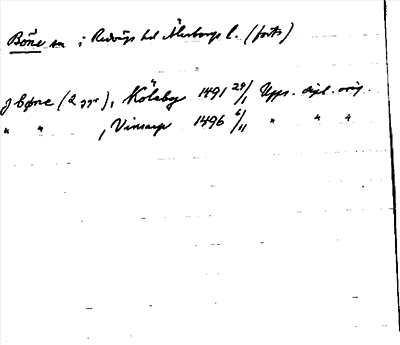 Böne sn i Redvägs hd Älvsborgs l. (forts)
J Böne (2 ggr), Kölaby 1491 29/1 Upps. dipl. orig.
" " , Vinsarp 1496 6/11 " " "